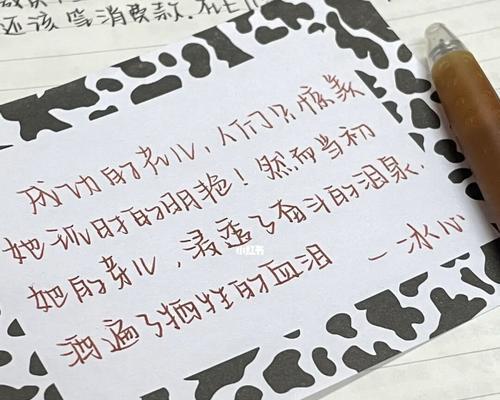 还该 消费款.
成功的花儿,人们只惊羡
她现时的明艳!然而当初
她的芽儿,浸透了奋斗的泪泉,
小红书
洒遍了牺牲的血泪 —冰心